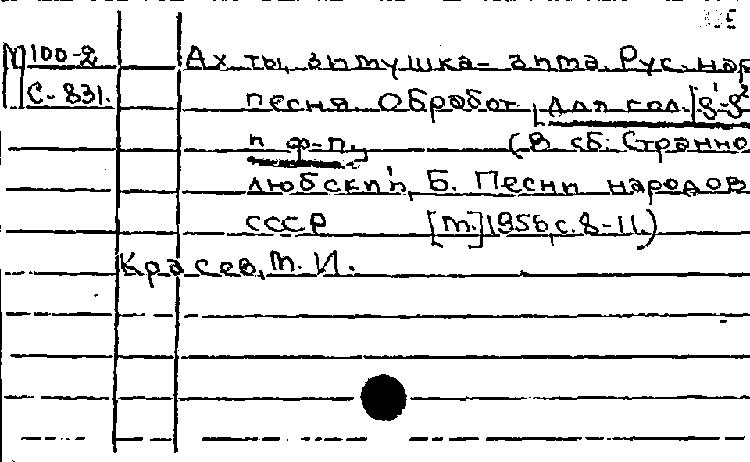 М 100-2 Ах ты, зимушка-зима. Рус. нар
С-831. песня. Обработ [для гол.
и ф-п.] (В сб: Странно
любский, Б. Песни народов
СССР [М.] 1956, с. 8-11.)
Красев, М. И.